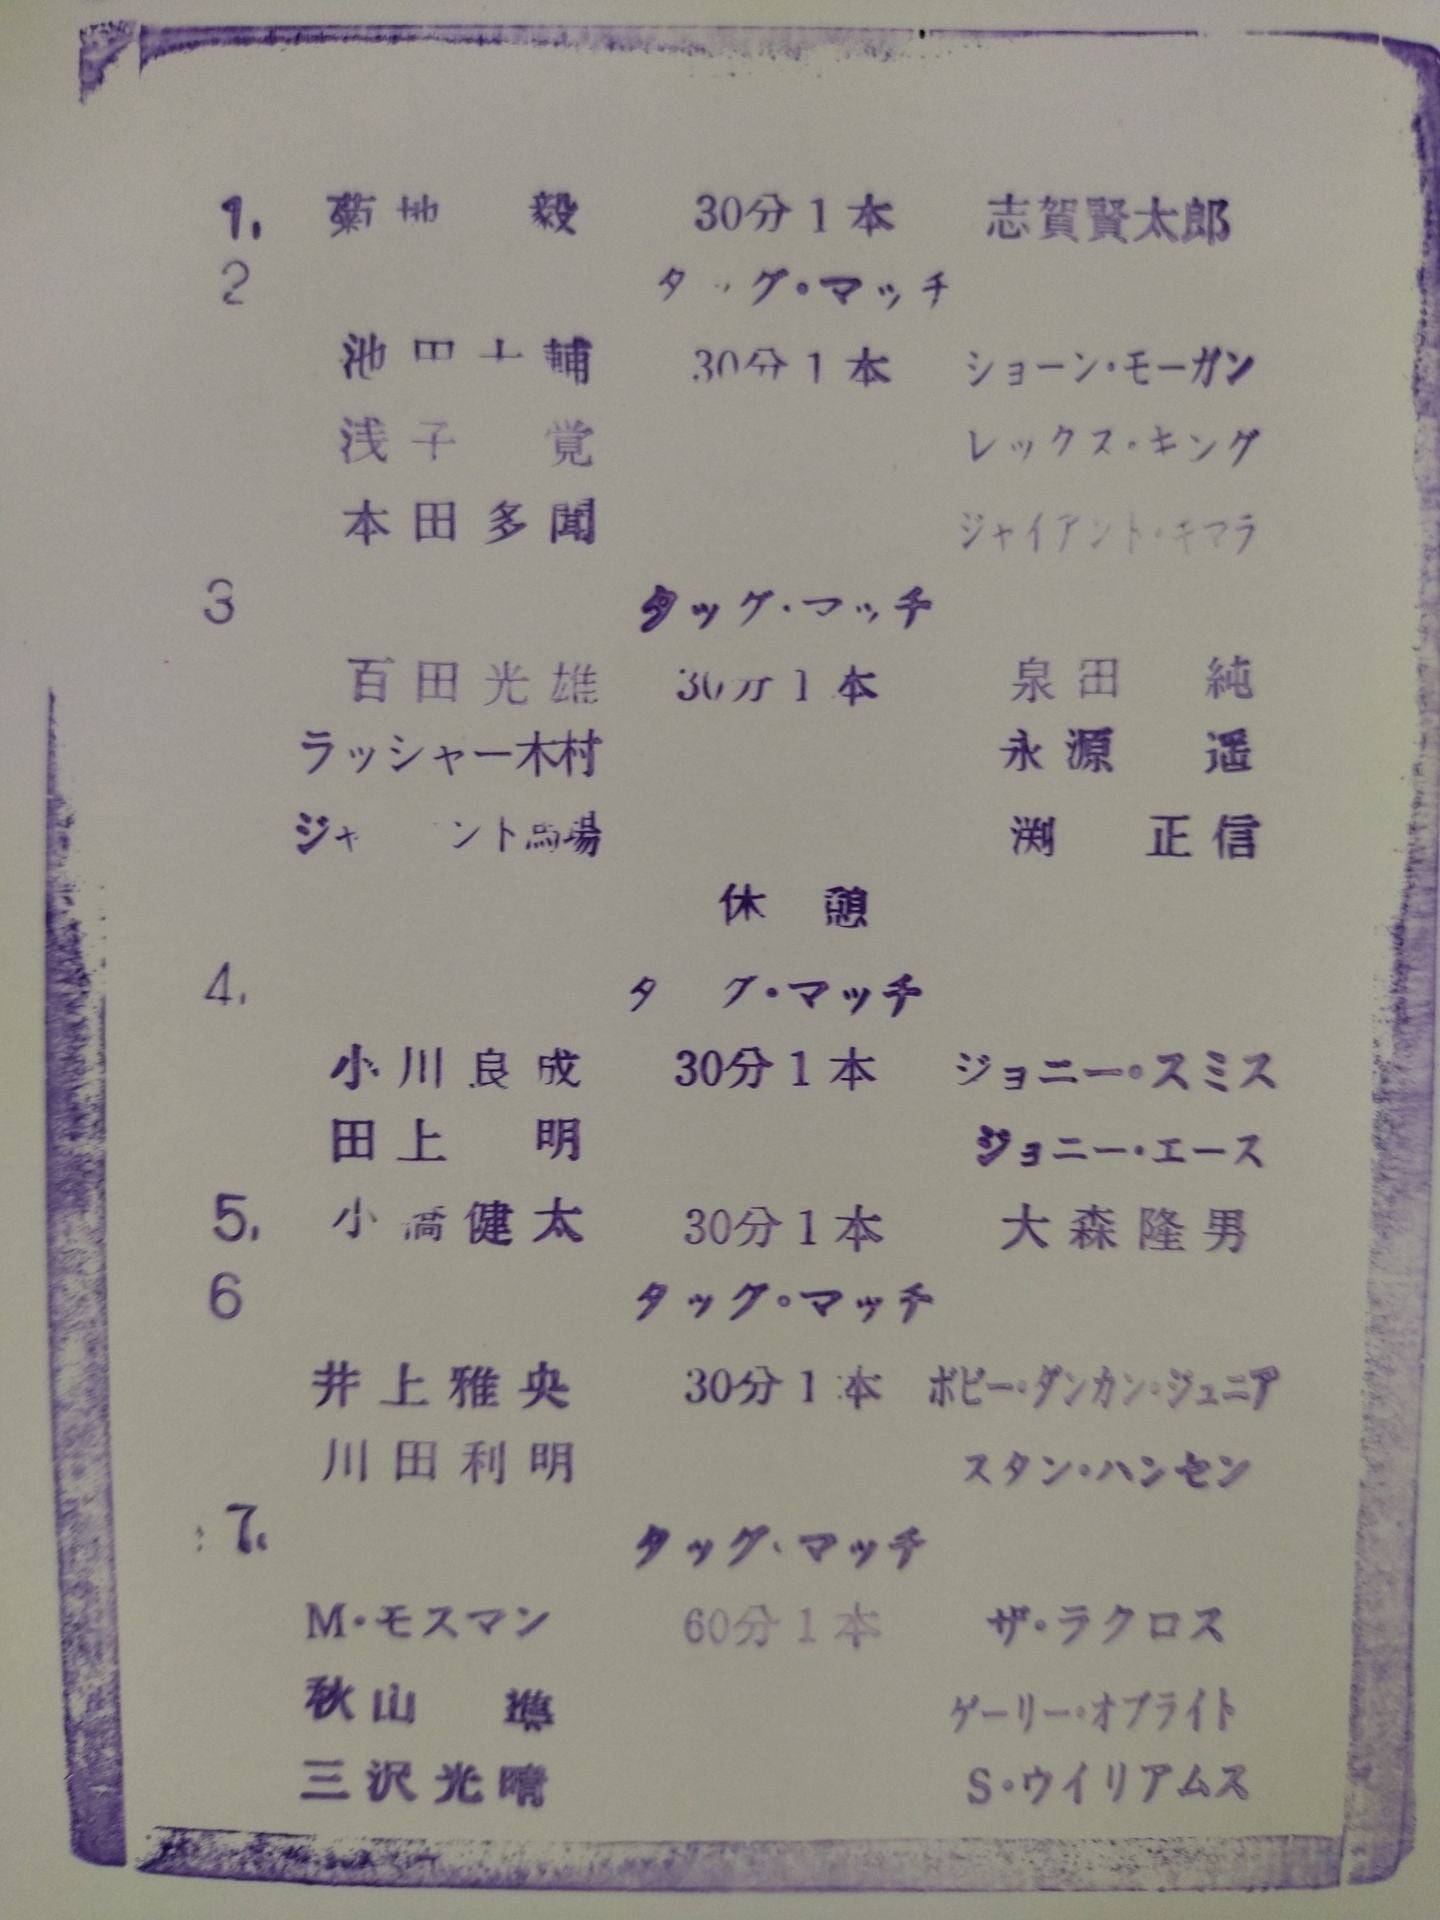 1. 菊地 毅 30分1本 志賀賢太郎
2 タッグ・マッチ
池田大輔 30分1本 ショーン・モーガン
浅子 覚 レックス・キング
本田多聞 ジャイアント・キマラ
3 タッグ・マッチ
百田光雄 30分1本 泉田 純
ラッシャー木村 永源 遥
ジャイアント馬場 渕 正信
休憩
4. タッグ・マッチ
小川良成 30分1本 ジョニー・スミス
田上 明 ジョニー・エース
5. 小橋健太 30分1本 大森隆男
6 タッグ・マッチ
井上雅央 30分1本 ボビー・ダンカン・ジュニア
川田利明 スタン・ハンセン
7. タッグ・マッチ
M・モスマン 60分1本 ザ・ラクロス
秋山 準 ゲーリー・オブライト
三沢光晴 S・ウイリアムス